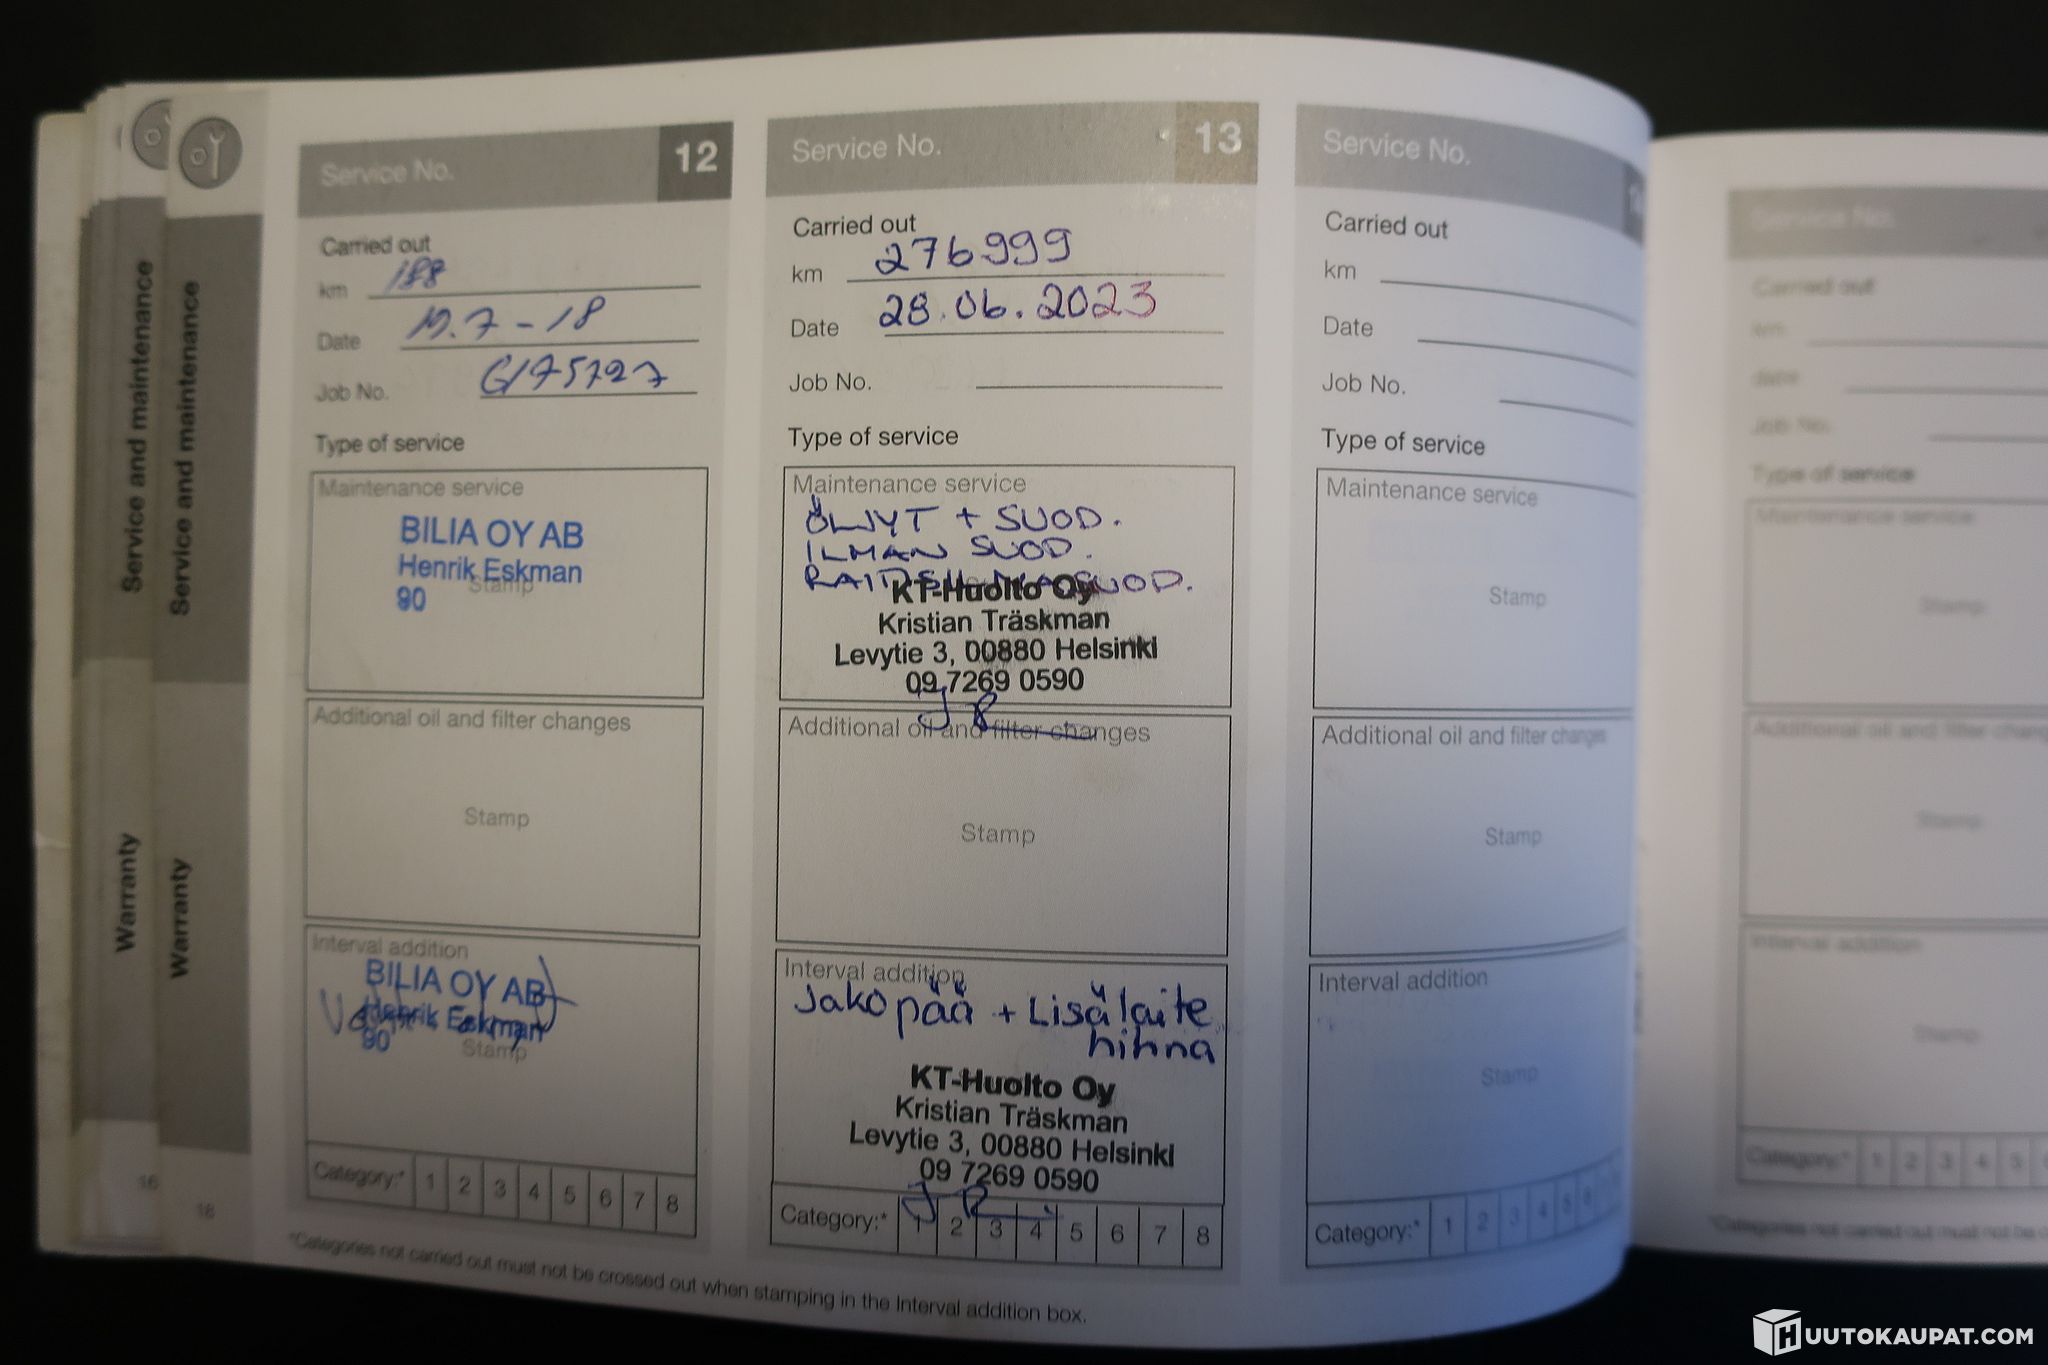 Service and maintenance
Warranty
16
Service and maintenance
Warranty
18
Service No. 12
Carried out
km 188
Date 19.7-18
Job No.
Type of service
Maintenance service
BILIA OY AB
Henrik Eskman
90
Stamp
Additional oil and filter changes
Stamp
Interval addition
BILIA OY AB
Henrik Eskman
90
Stamp
Category:* 1 2 3 4 5 6 7 8
Service No. 13
Carried out
km 276999
Date 28.06.2023
Job No.
Type of service
Maintenance service
ÖLJYT + SUOD.
ILMAN SUOD.
SUOD.
KT-Huolto Oy
Kristian Träskman
Levytie 3, 00880 Helsinki
09 7269 0590
JR
Additional oil and filter changes
Stamp
Interval addition
Jakopää + Lisälaite
hihna
KT-Huolto Oy
Kristian Träskman
Levytie 3, 00880 Helsinki
09 7269 0590
JR
Category:* 1 2 3 4 5 6 7 8
Service No.
Carried out
km
Date
Job No.
Type of service
Maintenance service
Stamp
Additional oil and filter changes
Stamp
Interval addition
Stamp
Category:* 1 2 3 4 5 6
*Categories not carried out must not be crossed out when stamping in the Interval addition box.
Service No.
Carried out
km
date
Job No.
Type of service
Maintenance service
Stamp
Additional oil and filter
Stamp
Interval addition
Stamp
Category:* 1 2 3 4 5
*Categories not carried out must not be
HUUTOKAUPAT.COM